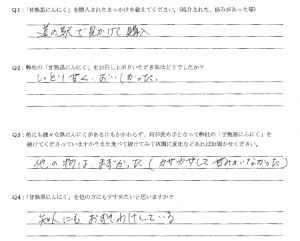 Q1:「甘熟黒にんにく」を購入されたきっかけを教えてください。(紹介された、悩みがあった等)
道の駅で見かけて購入
Q2:弊社の「甘熟黒にんにく」をお召し上がりいただき味はどうでしたか?
しっとり甘く、おいしかった。
Q3:他にも様々な黒にんにくがあるにもかかわらず、何が決め手となって弊社の「甘熟黒にんにく」を
続けてくださっていますか?また食べ続けてみて体調に変化などあればお聞かせください。
他の物は、まずかった(カサカサして甘みがなかった)
Q4:「甘熟黒にんにく」を他の方にもすすめたいと思いますか?
知人にもおすそわけしている